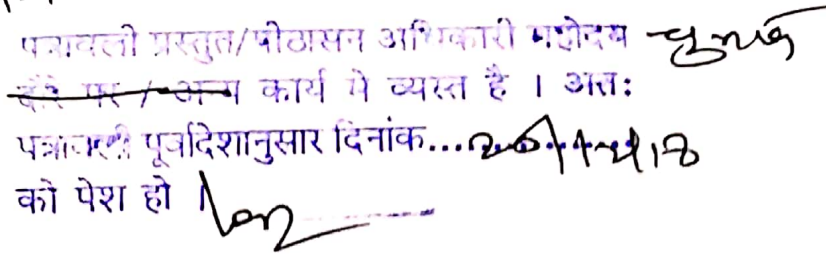 पत्रावली प्रस्तुत/पीठासन अधिकारी महोदय चुनाव
दौरे पर / अन्य कार्य मे व्यस्त है । अतः
पत्रावली पूर्वादेशानुसार दिनांक...26/12/18
को पेश हो ।